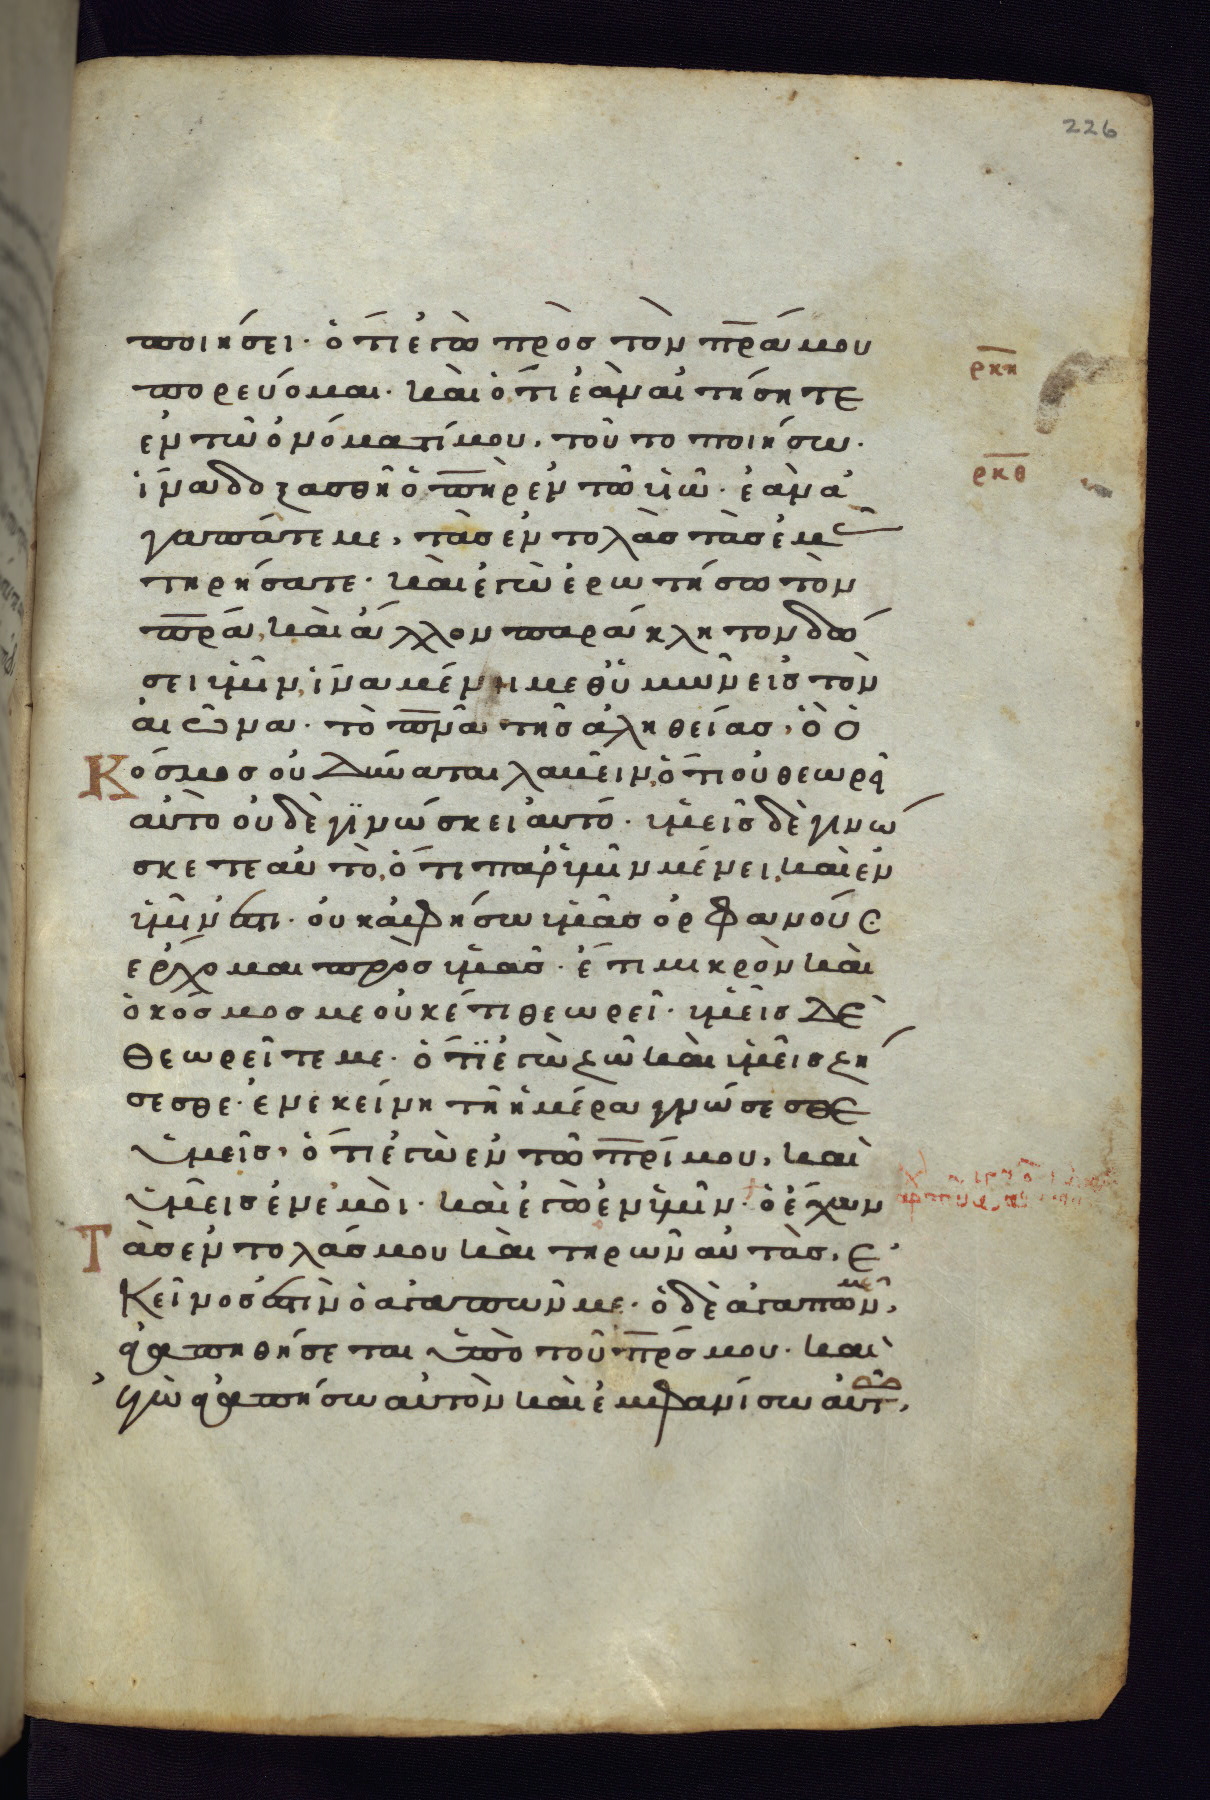 226
ποιήσει· ὅτι ἐγὼ πρὸς τὸν πρ̅α μου
ρκη
πορεύομαι· καὶ ὅτι ἐὰν αἰτήσητε
ἐν τῶ ὀνόματί μου, τοῦτο ποιήσω·
ρκθ
ἵνα δοξασθῆ ὁ πη̅ρ ἐν τῶ υ̅ω· ἐὰν ἀ
γαπᾶτε με, τὰς ἐντολὰς τὰς ἐμὰς
τηρήσατε· καὶ ἐγὼ ἐρωτήσω τὸν
πρ̅α, καὶ ἄλλον παράκλητον δώ
σει ὑμῖν, ἵνα μένηι μεθ' ὑμῶν εἰς τὸν
αἰῶνα· τὸ πν̅α τῆς ἀληθείας, ὃ ὁ
Κόσμος οὐ δύναται λαβεῖν, ὅτι οὐ θεωρεῖ
αὐτὸ οὐδὲ γινώσκει αὐτό· ὑμεῖς δὲ γινώ
σκετε αὐτὸ, ὅτι παρ' ὑμῖν μένει, καὶ ἐν
ὑμῖν ἐστι· οὐκ ἀφήσω ὑμᾶς ὀρφανούς
ἔρχομαι πρὸς ὑμᾶς· ἔτι μικρὸν καὶ
ὁ κόσμος με οὐκέτι θεωρεῖ· ὑμεῖς δὲ
θεωρεῖτε με· ὅτι ἐγὼ ζῶ καὶ ὑμεῖς ζή
σεσθε· ἐν ἐκείνη τῆ ἡμέρα γνώσεσθε
ὑμεῖς, ὅτι ἐγὼ ἐν τῶ πρ̅ι μου, καὶ
ὑμεῖς ἐν ἐμοὶ· καὶ ἐγὼ ἐν ὑμῖν· ὁ ἔχων
Τὰς ἐντολάς μου καὶ τηρῶν αὐτὰς, ἐ
κεῖνος ἐστὶν ὁ ἀγαπῶν με· ὁ δὲ ἀγαπῶν με,
ἀγαπηθήσεται ὑπὸ τοῦ πρ̅ς μου· καὶ
ἐγὼ ἀγαπήσω αὐτὸν καὶ ἐμφανίσω αὐτ,